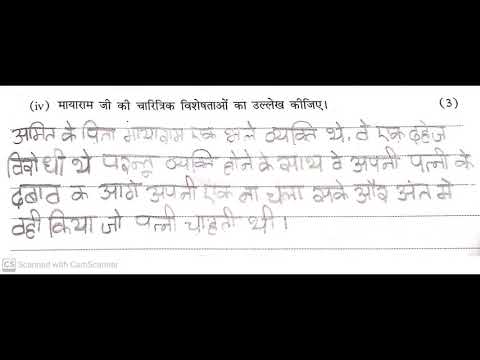 (iv) मायाराम जी की चारित्रिक विशेषताओं का उल्लेख कीजिए। (3)
अमित के पिता मायाराम एक भले व्यक्ति थे, वे एक दहेज
विरोधी थे परन्तू व्यक्ति होने के साथ वे अपनी पत्नी के
दबाव क आगे अपनी एक ना चला सके और अंत मे
वही किया जो पत्नी चाहती थी।
CS Scanned with CamScanner